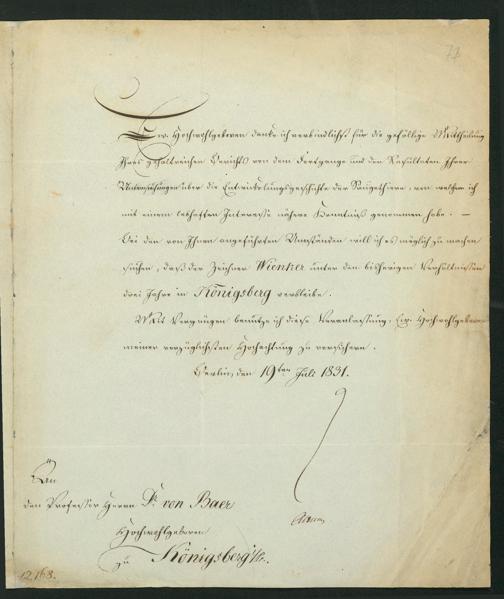 77
Ew. Hochwohlgeboren danke ich verbindlichst für die gefällige Mittheilung
Ihres gehaltreichen Berichts von dem Fortgange und den Resultaten Ihrer
Untersuchungen über die Entwickelungsgeschichte der Säugethiere, von welchem ich
mit einem lebhaften Interesse nähere Kenntniß genommen habe. —
Bei den von Ihnen angeführten Umständen will ich es möglich zu machen
suchen, daß der Zeichner Wienker unter den bisherigen Verhältnissen
drei Jahre in Königsberg verbleibe.
Mit Vergnügen benutze ich diese Veranlassung, Ew. Hochwohlgeboren
meiner vorzüglichsten Hochachtung zu versichern.
Berlin, den 19ten Juli 1831.
An
den Professor Herrn Dr. von Baer
Hochwohlgeboren
zu Königsberg i/Pr.
12168.